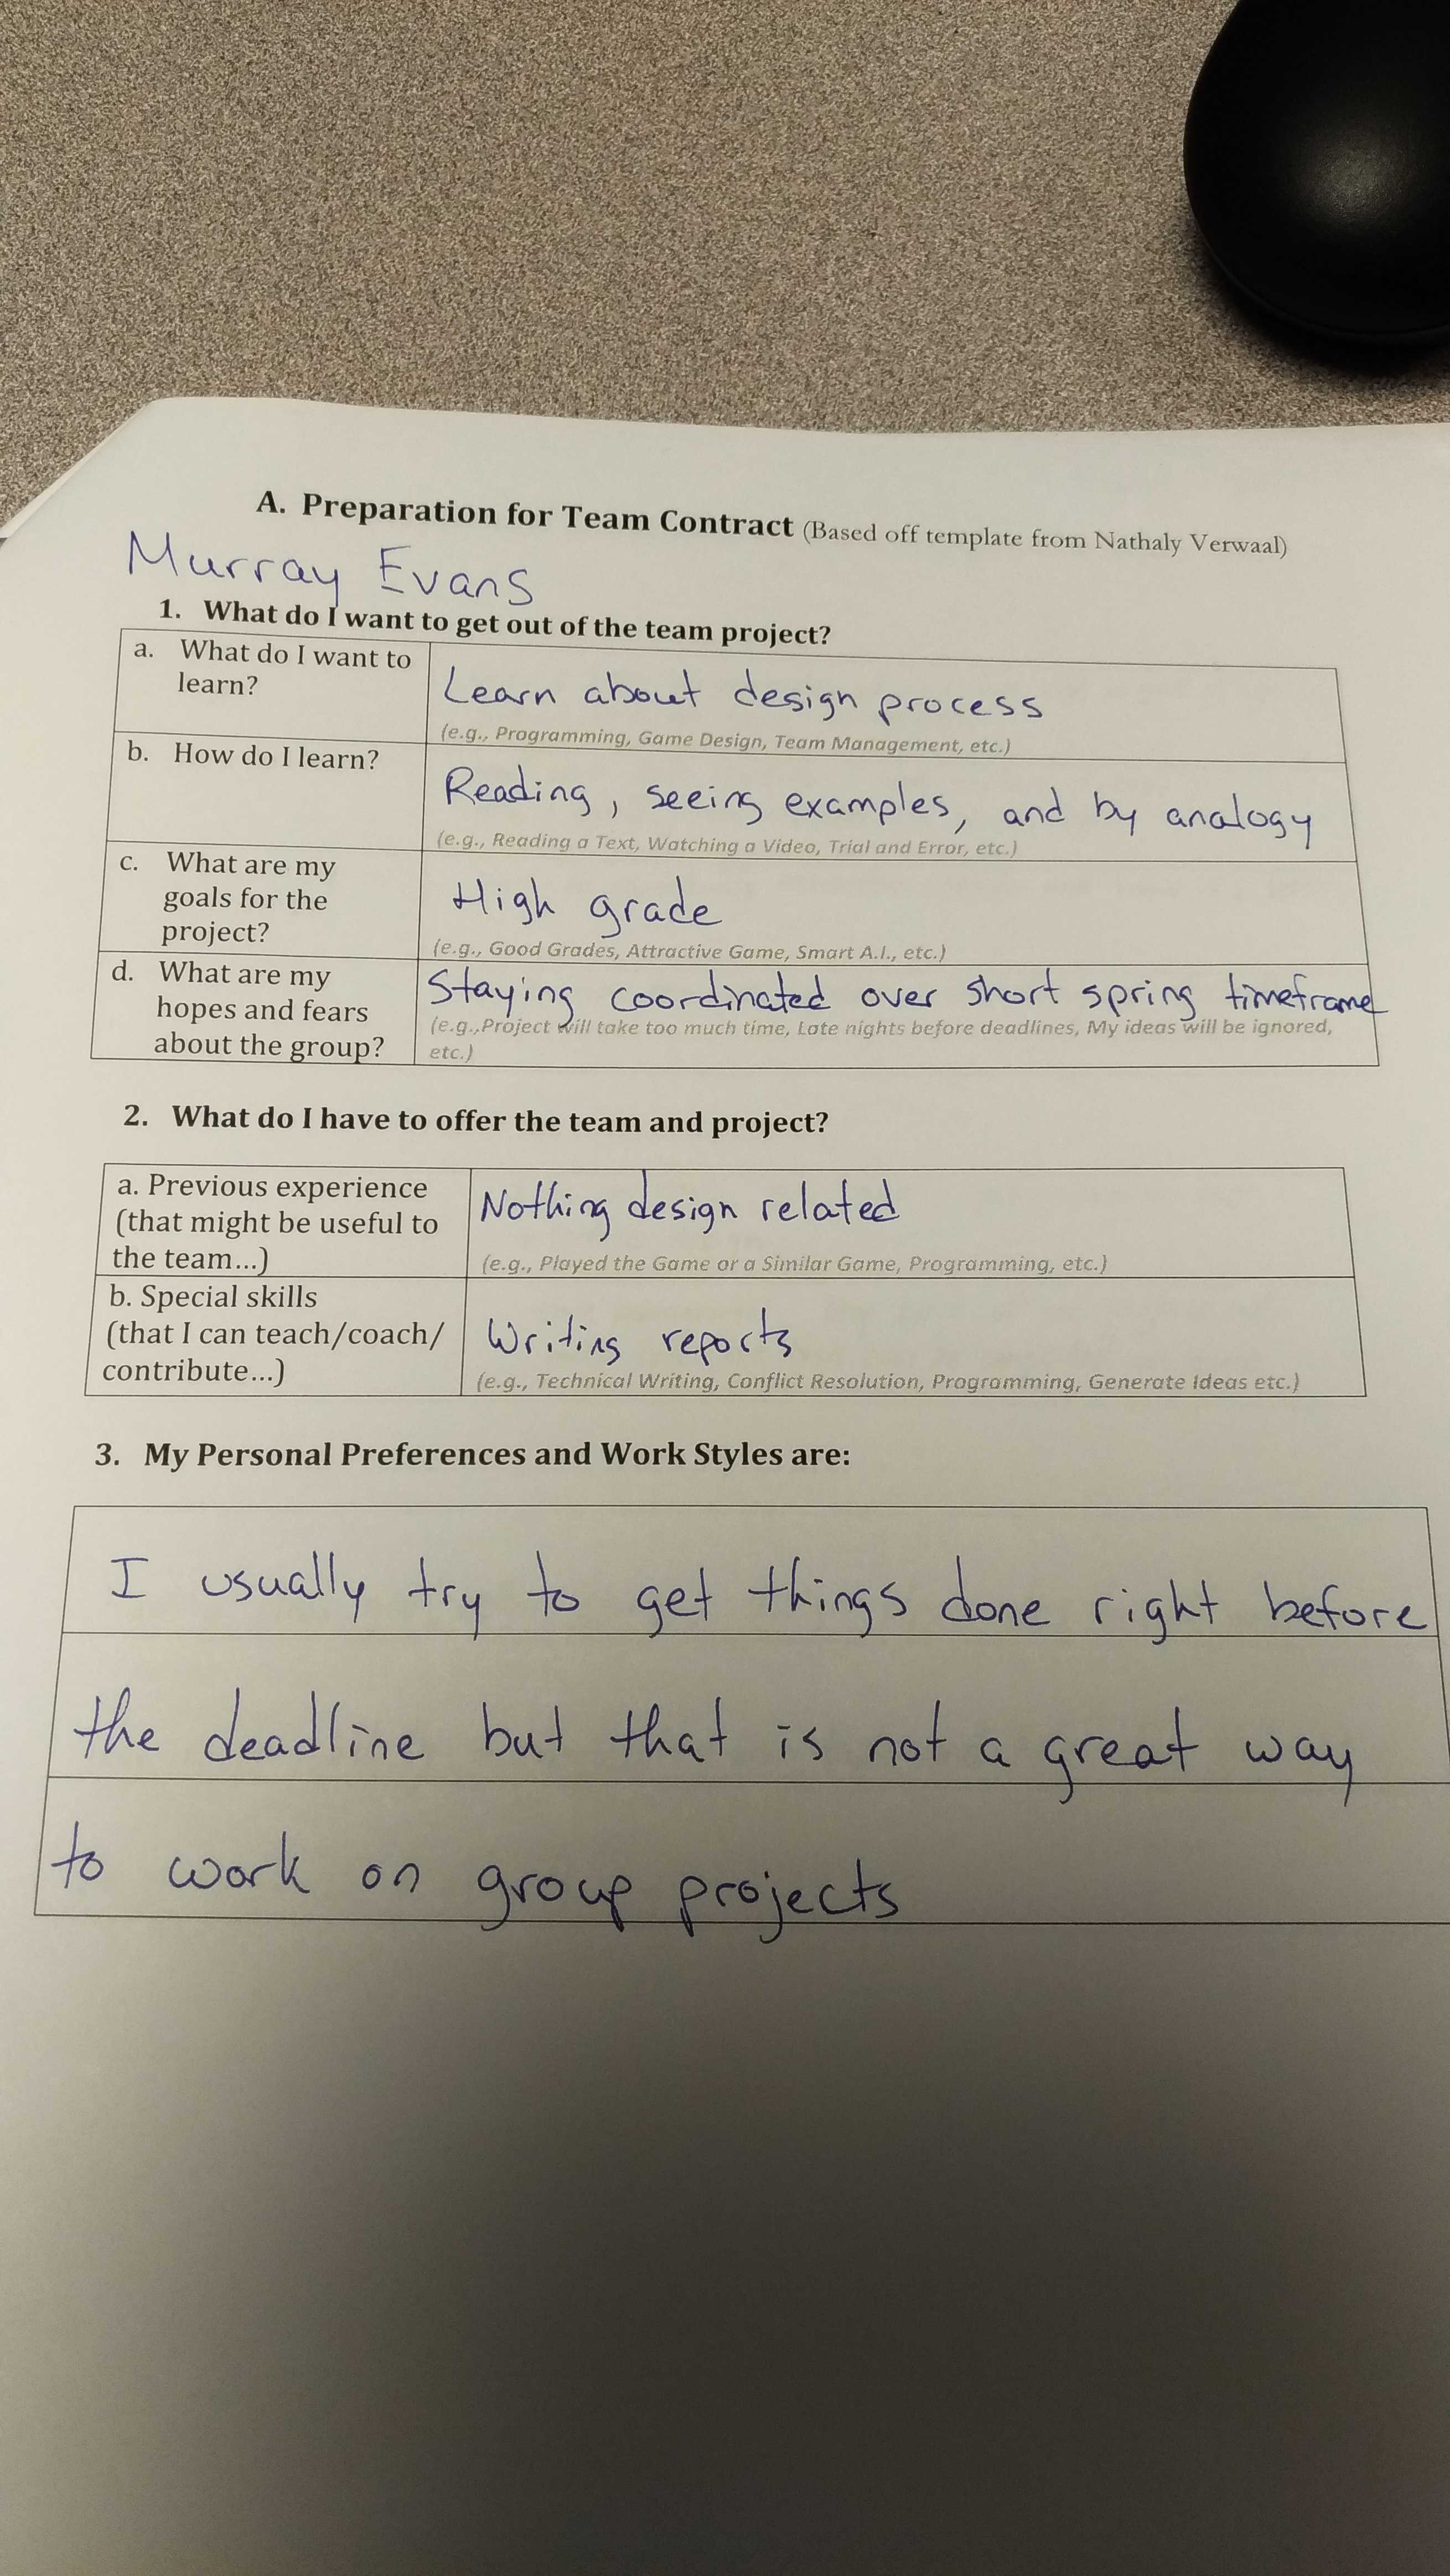 A. Preparation for Team Contract (Based off template from Nathaly Verwaal)
Murray Evans
1. What do I want to get out of the team project?
a. What do I want to
learn?
Learn about design process
(e.g., Programming, Game Design, Team Management, etc.)
b. How do I learn?
Reading, seeing examples, and by analogy
(e.g., Reading a Text, Watching a Video, Trial and Error, etc.)
c. What are my
goals for the
project?
High grade
(e.g., Good Grades, Attractive Game, Smart A.I., etc.)
d. What are my
hopes and fears
about the group?
Staying coordinated over short spring timeframe
(e.g.,Project will take too much time, Late nights before deadlines, My ideas will be ignored,
etc.)
2. What do I have to offer the team and project?
a. Previous experience
(that might be useful to
the team...)
Nothing design related
(e.g., Played the Game or a Similar Game, Programming, etc.)
b. Special skills
(that I can teach/coach/
contribute...)
Writing reports
(e.g., Technical Writing, Conflict Resolution, Programming, Generate Ideas etc.)
3. My Personal Preferences and Work Styles are:
I usually try to get things done right before
the deadline but that is not a great way
to work on group projects